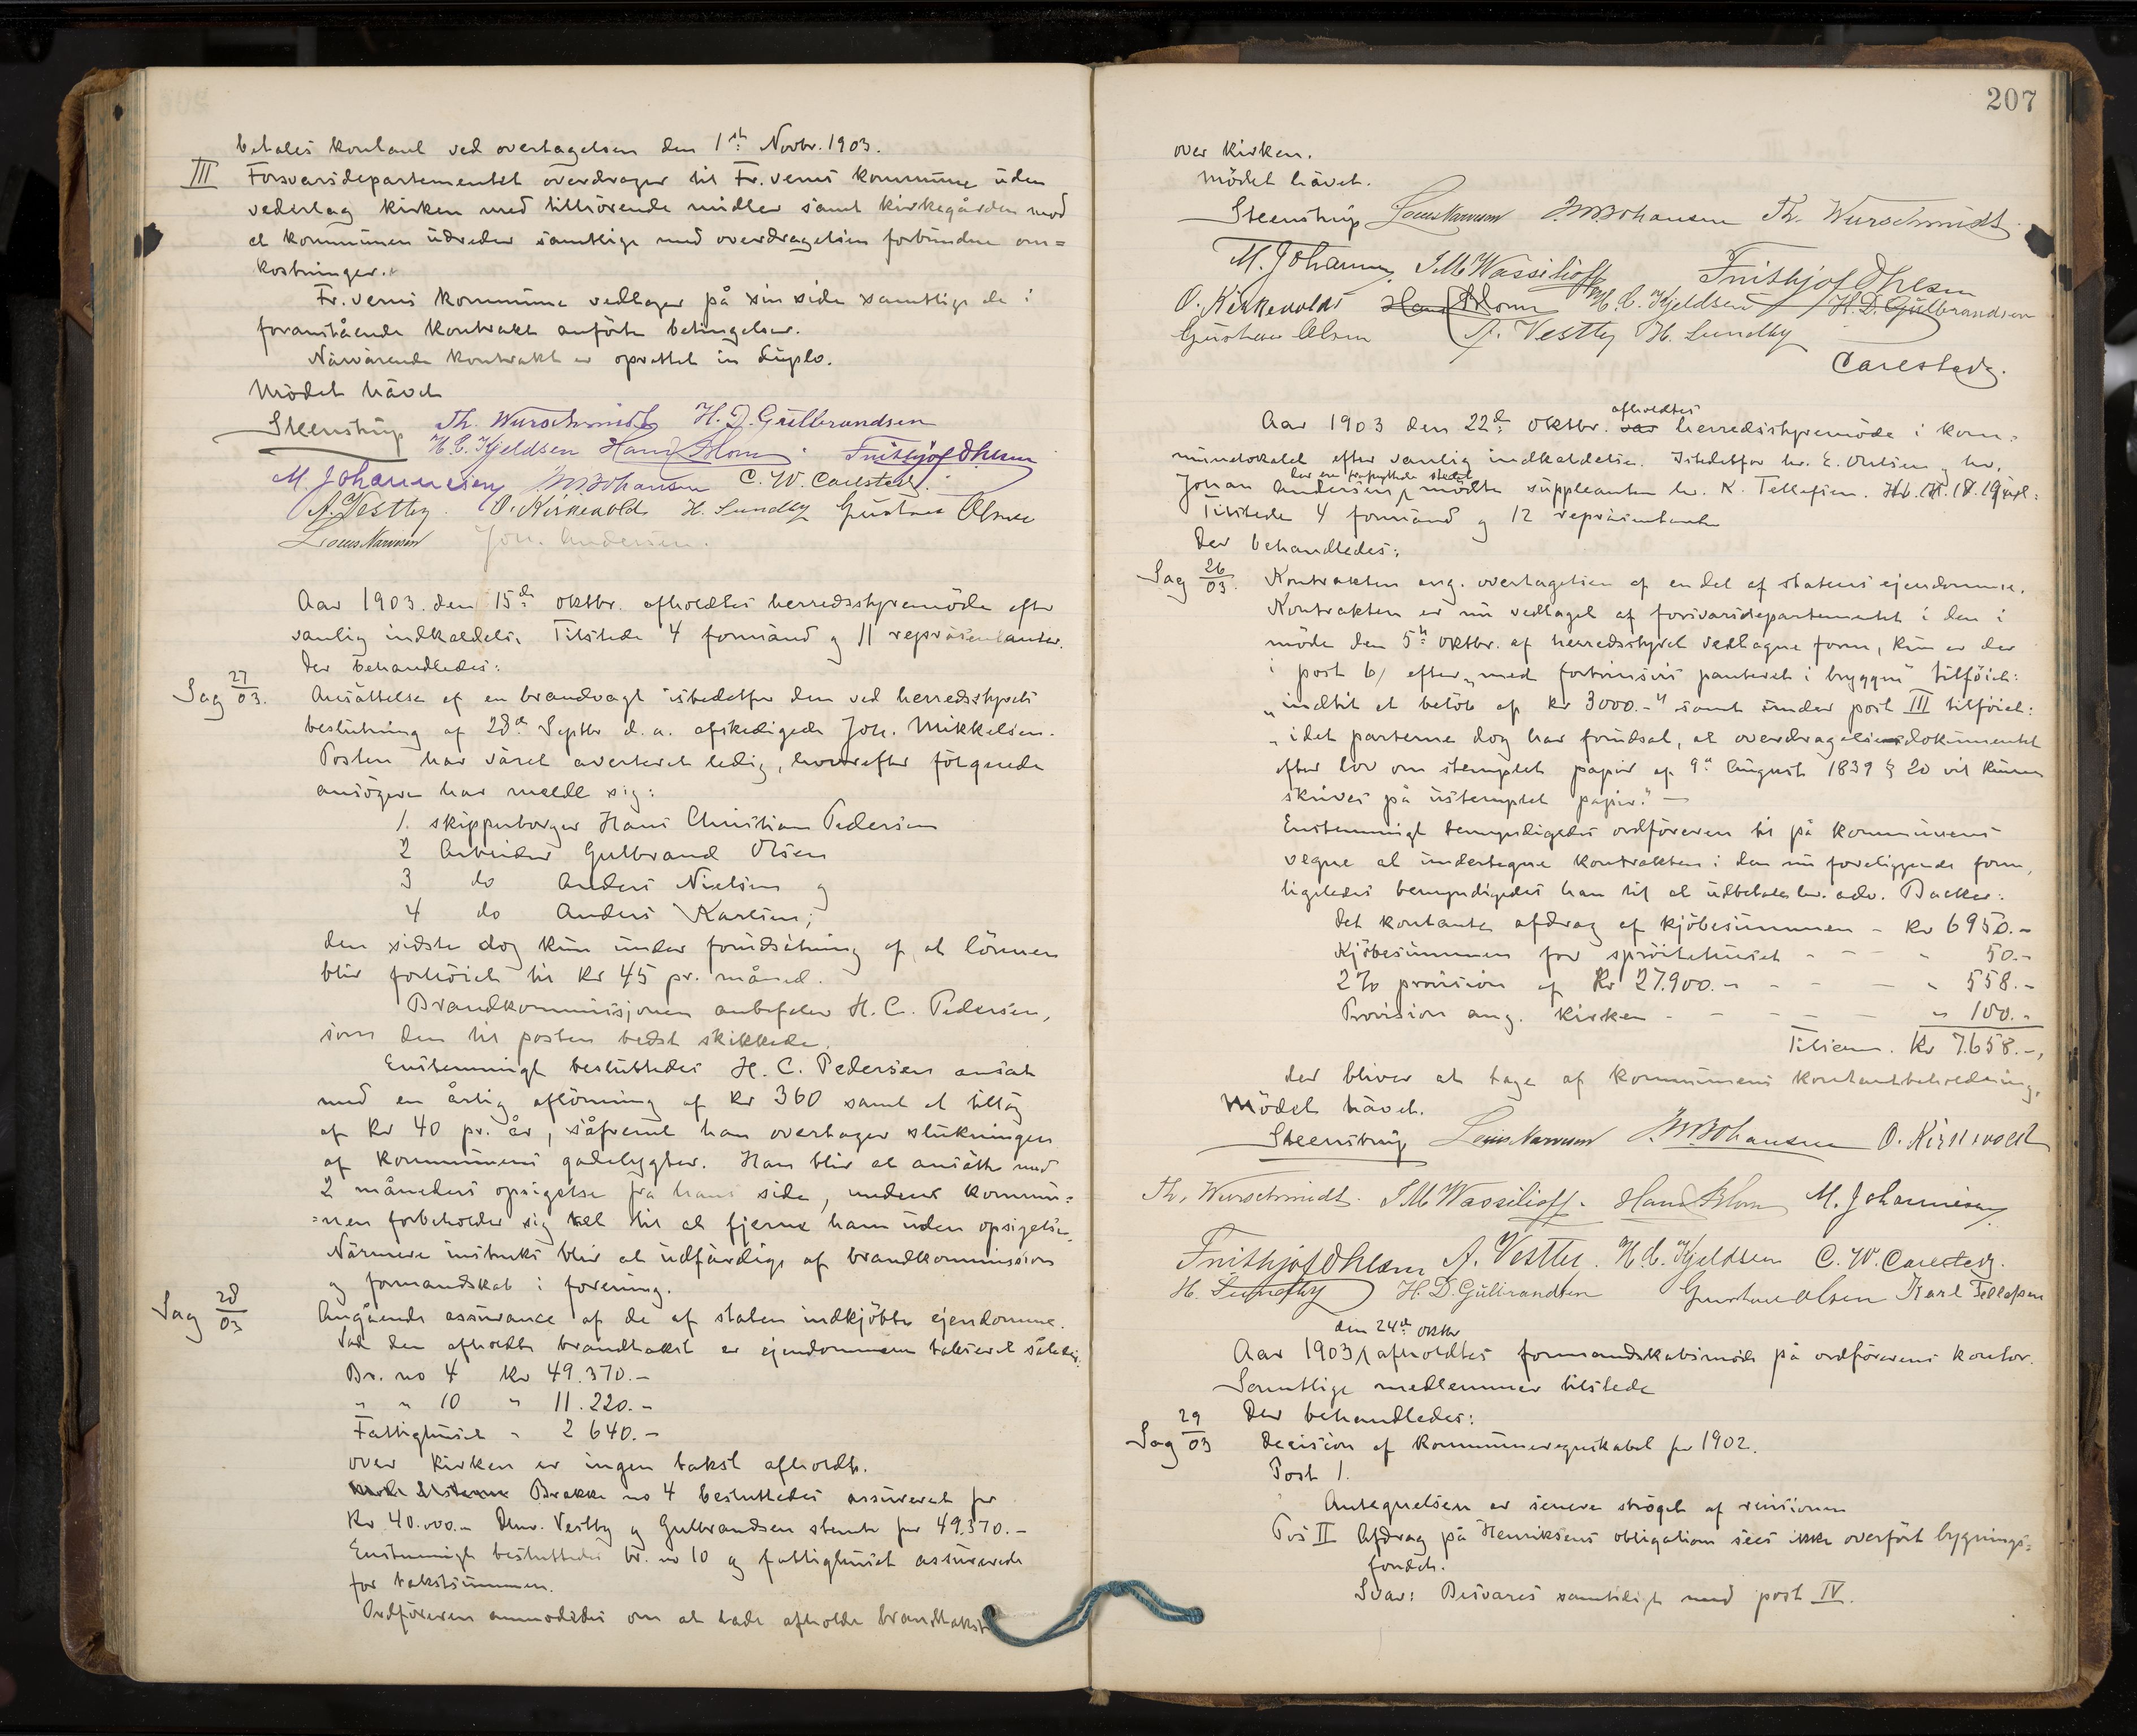 betales kontant ved overtagelsen den 1ste Novbr. 1903.
III Forsvarsdepartementet overdrager til Fr.verns kommune uden
vederlag kirken med tilhörende midler samt kirkegården mod
at kommunen udreder samtlige med overdragelsen forbundne om=
kostninger.
Fr.verns kommune vedtager på sin side samtlige de i
foranstående kontrakt anförte betingelser.
Närwärende kontrakt er oprettet in duplo.
Mödet hävet
Steenstrup Th. Wurschmidt H. D. Gulbrandsen
H. C. Kjeldsen Hans Blom Frithjof Ohlsen
M. Johannesen C. W. Carlstedt.
A. Vestby. O. Kirkevold H. Sundby Gustav Olsen
Joh. Andersen.
Aar 1903. den 15de oktbr. afholdtes herredsstyremöde efter
vanlig indkaldelse. Tilstede 4 formänd og 11 repräsentanter.
Der behandledes:
Sag 27/03. Ansättelse af en brandvagt istedetfor den ved herredsstyrets
beslutning af 28de Septbr d.a. afskedigede Joh. Mikkelsen.
Posten har väret averteret ledig, hvorefter fölgende
ansögere har meldt sig:
1. skipperborger Hans Christian Pedersen
2 Arbeider Gulbrand Olsen
3 do Anders Nielsen og
4 do Anders Karlsen;
den sidste dog kun under forudsätning af, at lönnen
blir forhöiet til Kr 45 pr. måned.
Brandkommissjonen anbefaler H. C. Pedersen,
som den til posten bedst skikkede.
Enstemmigt besluttedes H. C. Pedersen ansat
med en årlig aflönning af Kr 360 samt et tillög
af Kr 40 pr. år, såfremt han overtager slukningen
af kommunens gadelygter. Han blir at ansätte med
2 måneders opsigelse fra hans side, medens kommu=
=nen forbeholder sig ret til at fjerne ham uden opsigelse.
Närmere instruks blir at udfärdige af brandkommission
og formandskab i forening.
Sag 28/03 Angående assurance af de af staten indkjöbte eiendomme.
Ved den afholdte brandtakst er ejendommene takseret således:
Br. no 4 Kr 49.370.-
" " 10 " 11.220.-
Fattighuset " 2 640.-
over kirken er ingen takst afholdt.
Brakke no 4 besluttedes assureret for
Kr 40.000.- Dhrr. Vestby og Gulbrandsen stemte for 49.370.-
Enstemmigt besluttedes br. no 10 og fattighuset assurerede
for takstsummen.
Ordföreren anmodedes om at lade afholde brandtakst
207
over kirken.
Mödet hävet.
Steenstrup J. M. Johansen Th. Wurschmidt
M. Johannesen J. M. Wassilioff Frithjof Ohlsen
O. Kirkevold Hans Blom H. C. Kjeldsen H. D. Gulbrandsen
Gustav Olsen A. Vestby H. Sundby
Carlstedt.
Aar 1903 den 22de oktbr. afholdtes herredsstyremöde i kom=
munelokalet efter vanlig indkaldelse. Istedetfor hr. E. Ohlsen og hr.
Johan Andersen, der er fraflyttede stedet, mödte suppleanten hr. K. Tellefsen.
Tilstede 4 formänd og 12 repräsentanter
Der behandledes:
Sag 26/03. Kontrakten ang. overtagelsen af en del af statens ejendomme.
Kontrakten er nu vedtaget af forsvarsdepartementet i den i
möde den 5te oktbr. af herredsstyret vedtagne form, kun er der
i post 6, efter "med fortrinsvis panteret i byggni" tilföiet:
"indtil et belöb af kr 3000.-" samt under post III tilföiet:
"idet parterne dog har forudsat, at overdragelsesdokumentet
efter lov om stemplet papir af 9de August 1839 § 20 vil kunne
skrives på ustemplet papir." —
Enstemmigt bemyndigedes ordföreren til på kommunens
vegne at undertegne kontrakten i den nu foreliggende form,
ligeledes bemyndigedes han til at udbetale hr. adv. Backer:
Det kontante afdrag af kjöbesummen - Kr 6950.-
Kjöbesummen for spröitehuset - - - " 50.-
2% provision af Kr 27.900.- - - - - " 558.-
Provision ang. kirken - - - - - " 100.-
Tilsam. Kr 7.658.-,
der bliver at tage af kommunens kontantbeholdning.
Mödet hävet.
Steenstrup J. M. Johansen O. Kirkevold
Th. Wurschmidt. J M Wassilioff. Hans Blom M. Johannesen
Frithjof Ohlsen A. Vestby. H. C. Kjeldsen C. W. Carlstedt.
H. Sundby H. D. Gulbrandsen Gustav Olsen Karl Tellefsen
Aar 1903 den 24de oktbr afholdtes formandskabsmöde på ordförerens kontor.
Samtlige medlemmer tilstede
Der behandledes:
Sag 29/03 Decision af kommuneregnskabet for 1902.
Post 1.
Antegnelsen er senere ströget af revisionen
Pos II Afdrag på Henriksens obligation sees ikke overfört bygnings=
fondet.
Svar: Besvares samtidigt med post IV.